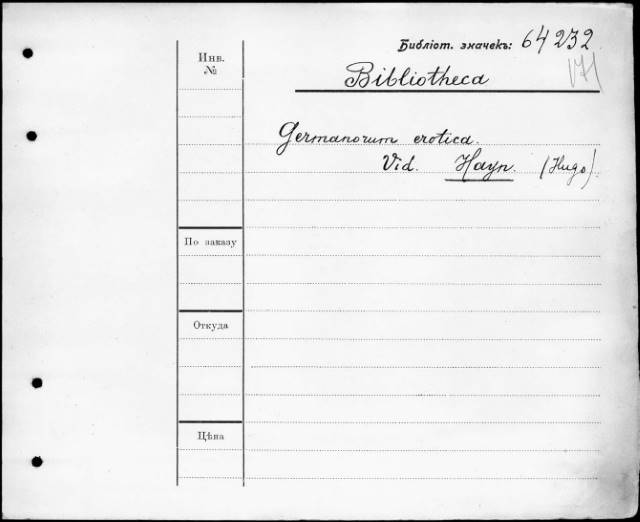 Библіот. значекъ: 64232
Инв.
№
Bibliotheca
Germanorum erotica.
Vid. Hayn. (Hugo).
По заказу
Откуда
Цѣна